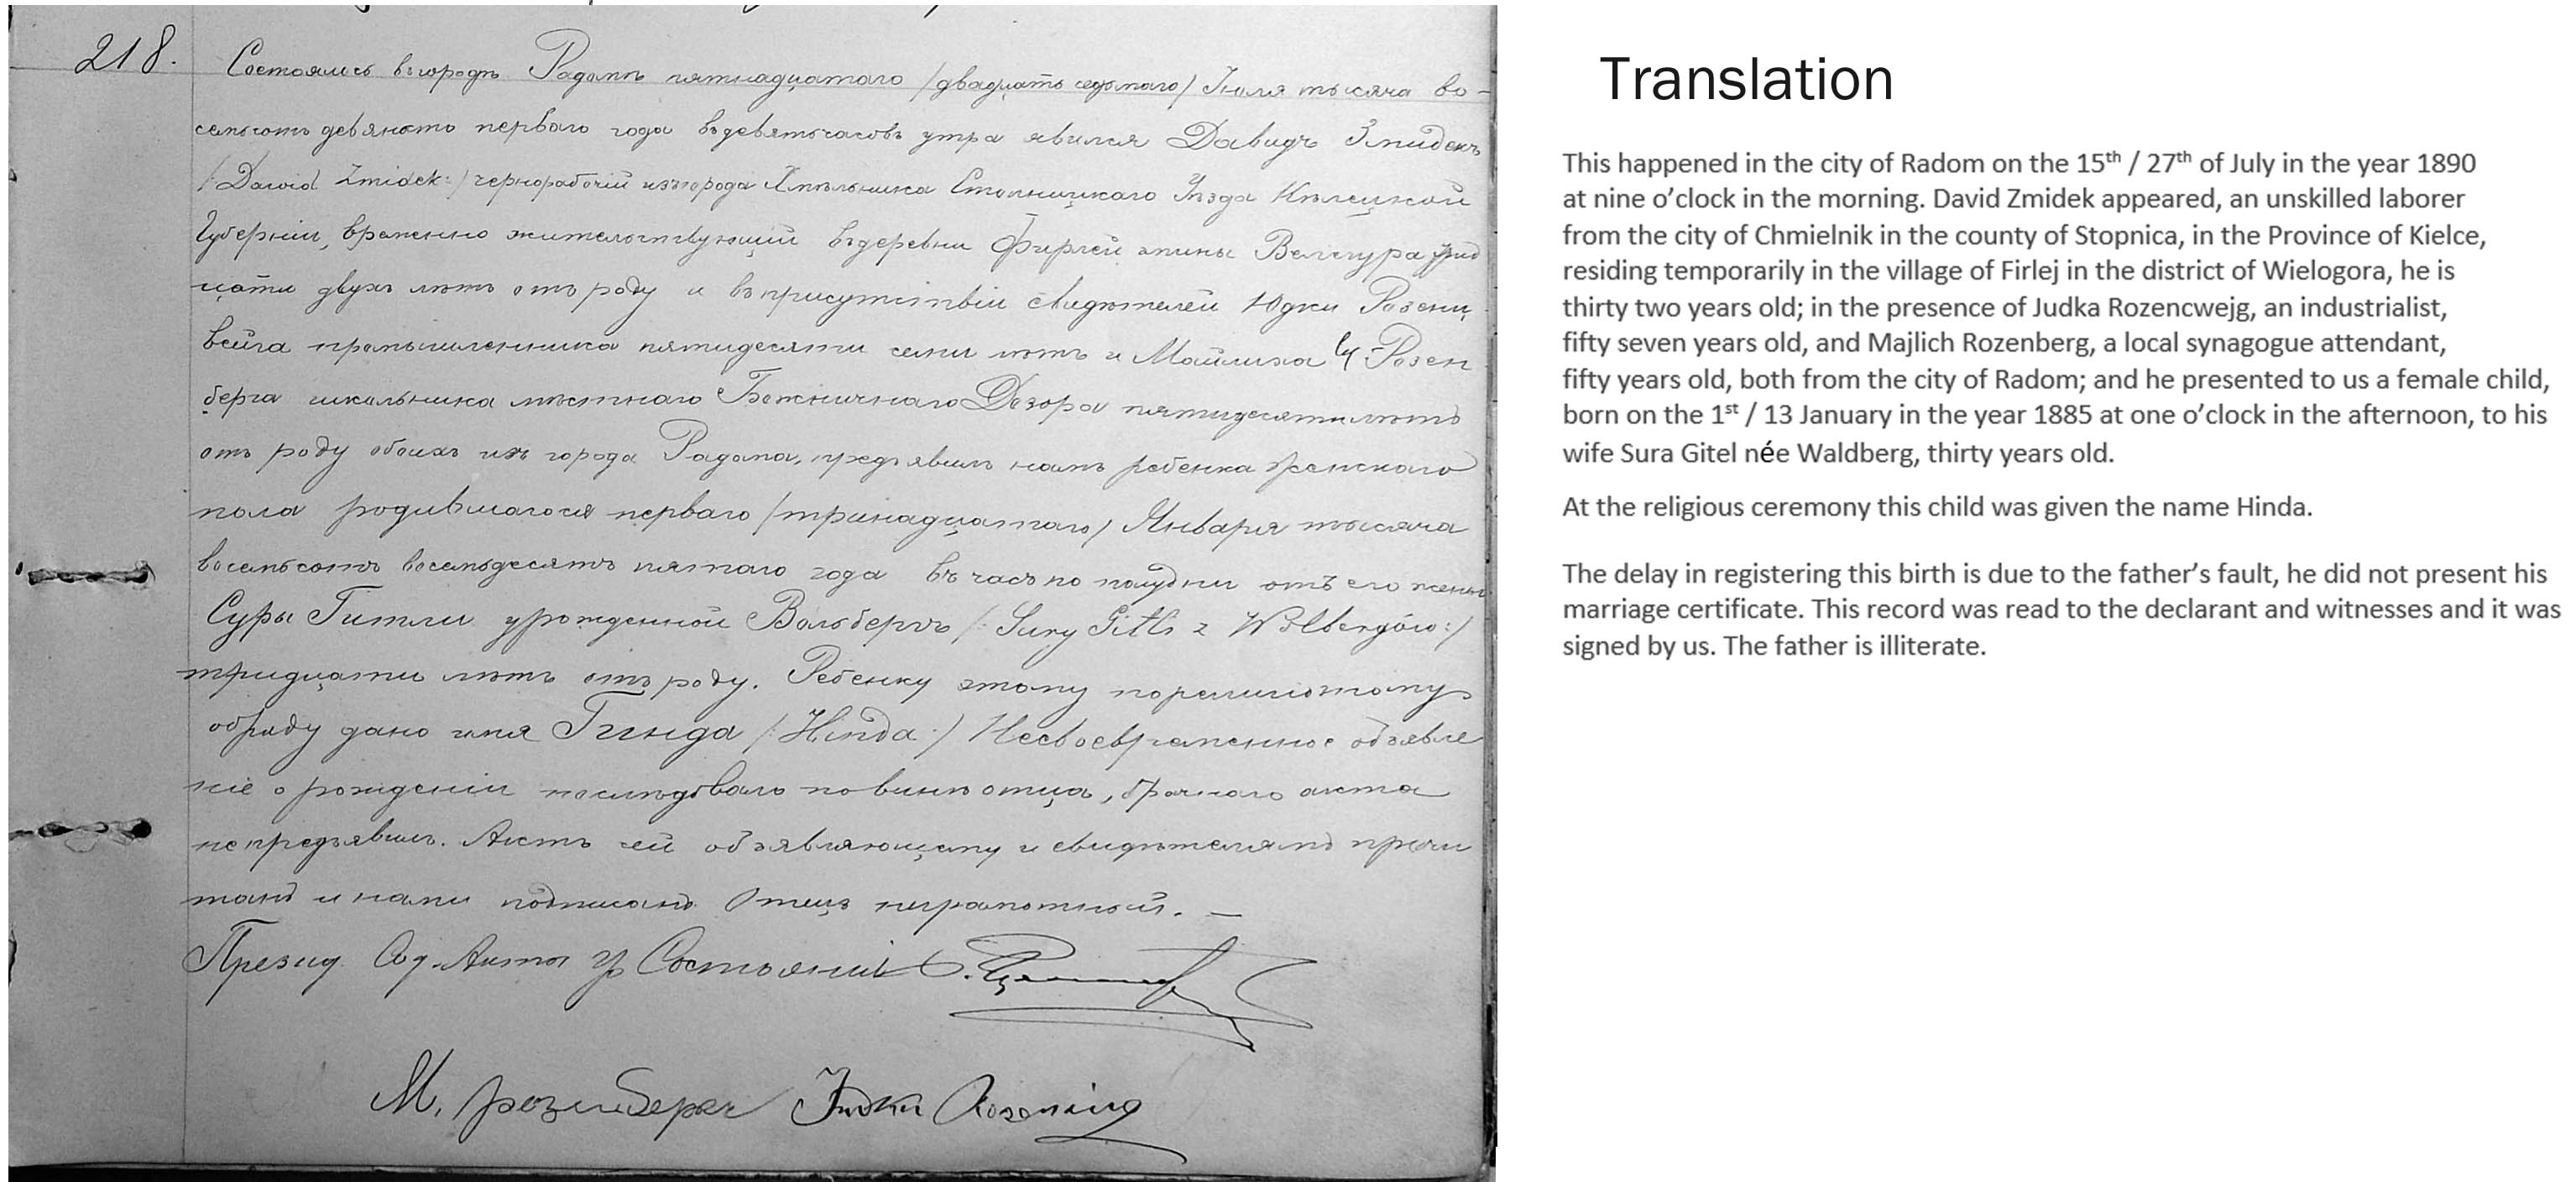 218.
Состоялось въ городѣ Радомѣ пятнадцатаго /двадцать седьмаго/ Іюля тысяча во-
семьсотъ девяносто перваго года въ девять часовъ утра явился Давидъ Змидекъ
/:Dawid Zmidek:/ чернорабочій изъ города Хмѣльника Стопницкаго Уѣзда Кѣлецкой
Губерніи, временно жительствующій въ деревни Фирлей гмины Велегура трид
цати двухъ лѣтъ отъ роду и въ присутствіи свидѣтелей Юдки Розенц
вейга промышленника пятидесяти семи лѣтъ и Майлиха Розен
берга школьника мѣстнаго Божничнаго Дозора пятидесяти лѣтъ
отъ роду обоихъ изъ города Радома, предъявилъ намъ ребенка женскаго
пола родившагося перваго /тринадцатаго/ Января тысяча
восемьсотъ восемьдесятъ пятаго года въ часъ по полудни отъ его жены
Суры Гитли урожденной Вольбергъ /:Sury Gitli z Wolbergów:/
тридцати лѣтъ отъ роду. Ребенку этому по религіозному
обряду дано имя Гинда /:Hinda:/ Несвоевременное объявле
ніе о рожденіи послѣдовало по винѣ отца, брачнаго акта
не предъявилъ. Актъ сей объявляющему и свидѣтелямъ прочи
танъ и нами подписанъ Отецъ неграмотный. —
Презид. Сод. Акты Гр. Состоянія
М. Розенбергъ Юдка
Translation
This happened in the city of Radom on the 15th / 27th of July in the year 1890
at nine o’clock in the morning. David Zmidek appeared, an unskilled laborer
from the city of Chmielnik in the county of Stopnica, in the Province of Kielce,
residing temporarily in the village of Firlej in the district of Wielogora, he is
thirty two years old; in the presence of Judka Rozencwejg, an industrialist,
fifty seven years old, and Majlich Rozenberg, a local synagogue attendant,
fifty years old, both from the city of Radom; and he presented to us a female child,
born on the 1st / 13 January in the year 1885 at one o’clock in the afternoon, to his
wife Sura Gitel née Waldberg, thirty years old.
At the religious ceremony this child was given the name Hinda.
The delay in registering this birth is due to the father’s fault, he did not present his
marriage certificate. This record was read to the declarant and witnesses and it was
signed by us. The father is illiterate.